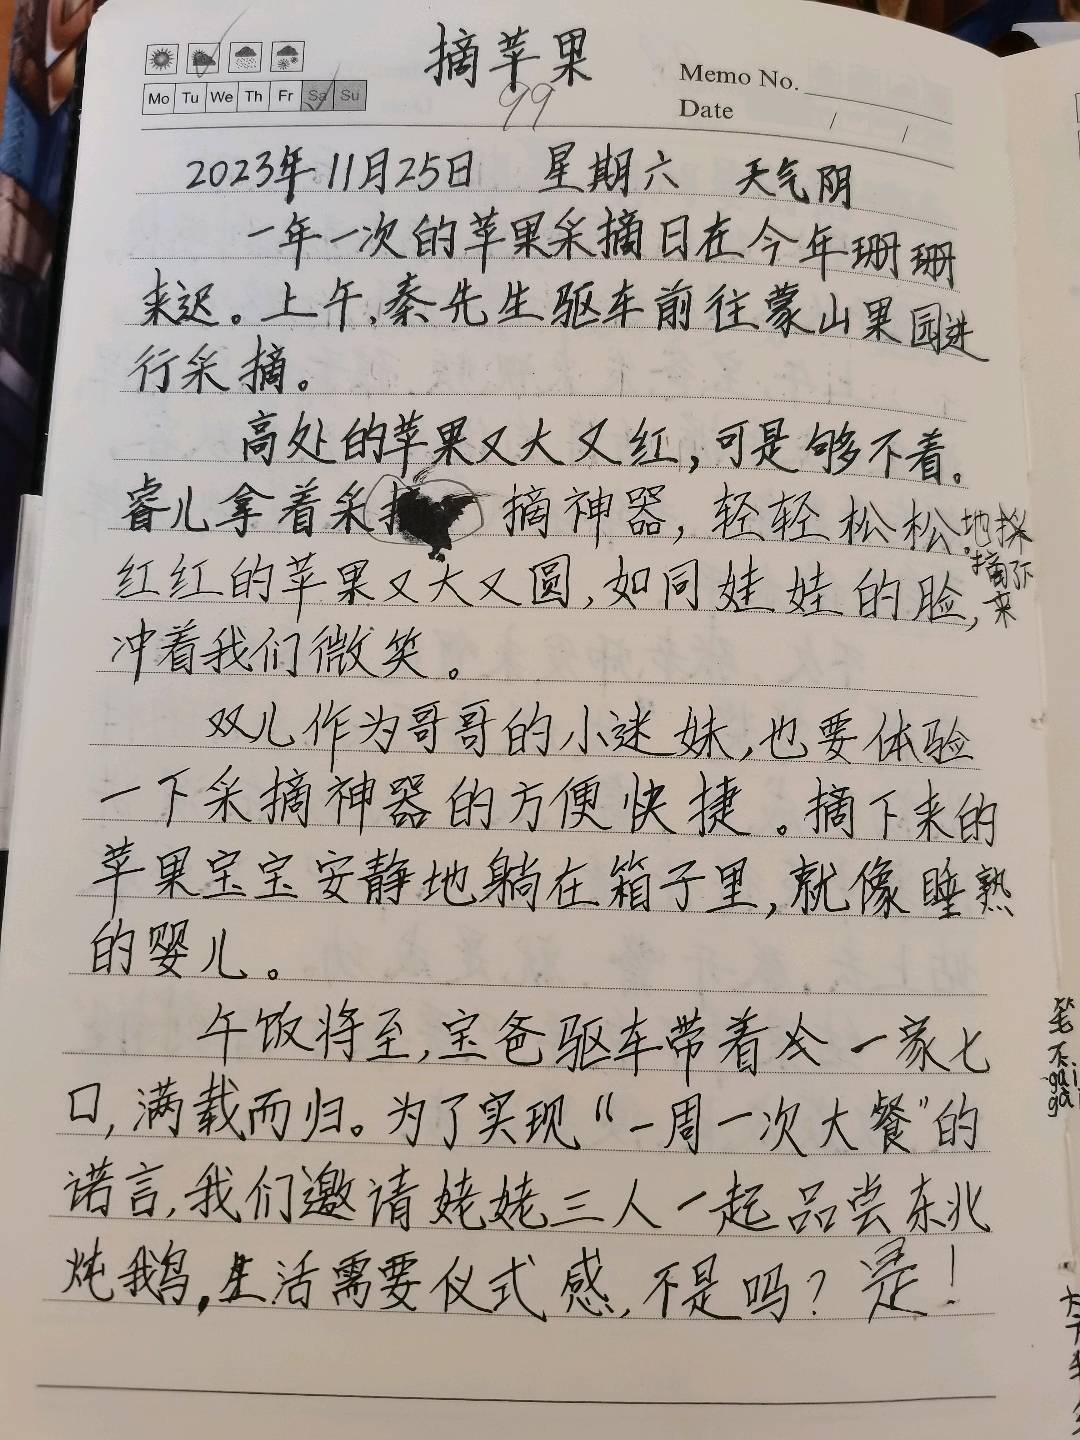 摘苹果
99
Memo No.
Date / /
Mo Tu We Th Fr Sa Su
2023年11月25日 星期六 天气阴
一年一次的苹果采摘日在今年珊珊
来迟。上午,秦先生驱车前往蒙山果园进
行采摘。
高处的苹果又大又红,可是够不着。
睿儿拿着采摘神器,轻轻松松地採
摘下来
红红的苹果又大又圆,如同娃娃的脸,
冲着我们微笑。
双儿作为哥哥的小迷妹,也要体验
一下采摘神器的方便快捷。摘下来的
苹果宝宝安静地躺在箱子里,就像睡熟
的婴儿。
午饭将至,宝爸驱车带着一家七
口,满载而归。为了实现“一周一次大餐”的
诺言,我们邀请姥姥三人一起品尝东北
炖鹅,生活需要仪式感,不是吗?是!
笔不